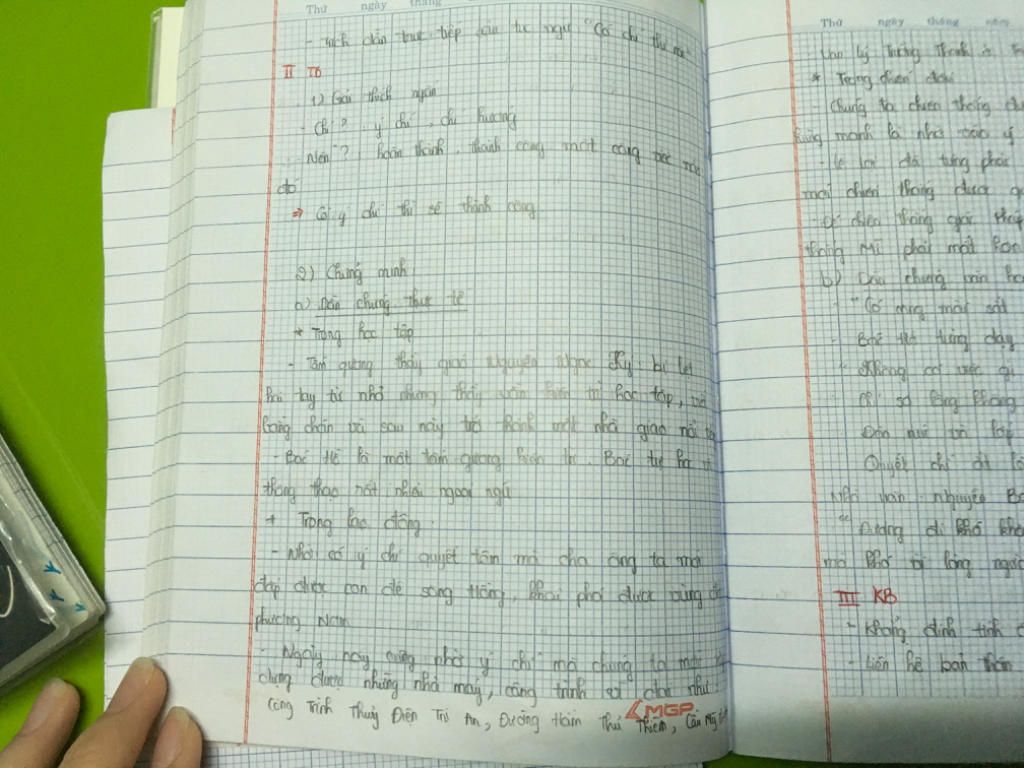 Thứ ngày tháng
- Trích dẫn trực tiếp câu tục ngữ "Có chí thì nên"
II TB
1) Giải thích ngắn
- Chí? : ý chí, chí hướng
- Nên? : hoàn thành, thành công một công việc nào
đó
=> Có ý chí thì sẽ thành công
2) Chứng minh
a) Dẫn chứng thực tế
* Trong học tập
- Tấm gương thầy giáo Nguyễn Ngọc Ký bị liệt
hai tay từ nhỏ nhưng thầy vẫn kiên trì học tập,
bằng chân và sau này trở thành một nhà giáo nổi
- Bác Hồ là một tấm gương kiên trì. Bác tự học
thông thạo rất nhiều ngoại ngữ
* Trong lao động
- Nhờ có ý chí quyết tâm mà cha ông ta mới
đắp được con đê sông Hồng, khai phá được vùng
phương Nam
- Ngày nay cũng nhờ ý chí mà chúng ta mới
dựng được những nhà máy, công trình vĩ đại như:
Công Trình Thuỷ Điện Trị An, Đường Hầm Thủ Thiêm, Cầu Mỹ
MGP
Thứ ngày tháng năm
* Trong chiến đấu
- Chúng ta chiến thắng
hùng mạnh là nhờ vào ý
- Lê Lợi đã từng phải
mới chiến thắng được
- Để chiến thắng giặc Pháp
thắng Mĩ phải mất hơn
b) Dẫn chứng văn
- "Có công mài sắt
- Bác Hồ từng dạy
"Không có việc gì
Chỉ sợ lòng không
Đào núi và lấp
Quyết chí ắt
Nhà văn Nguyễn Bá
"Đường đi khó không
mà khó vì lòng người
III KB
- Khẳng định tính
- Liên hệ bản thân